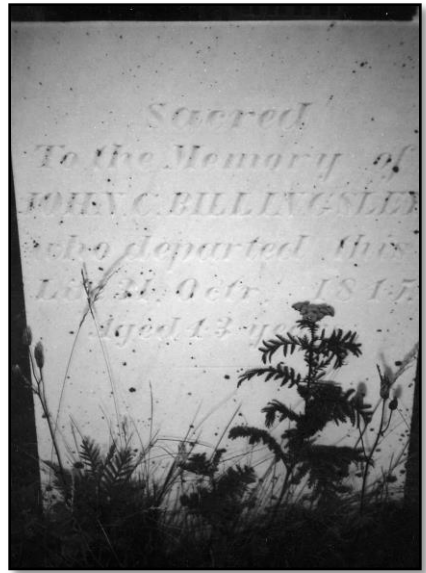 Sacred
To the Memory of
JOHN C. BILLINGSLEY
who departed this
31 Octr. 184
Aged 43